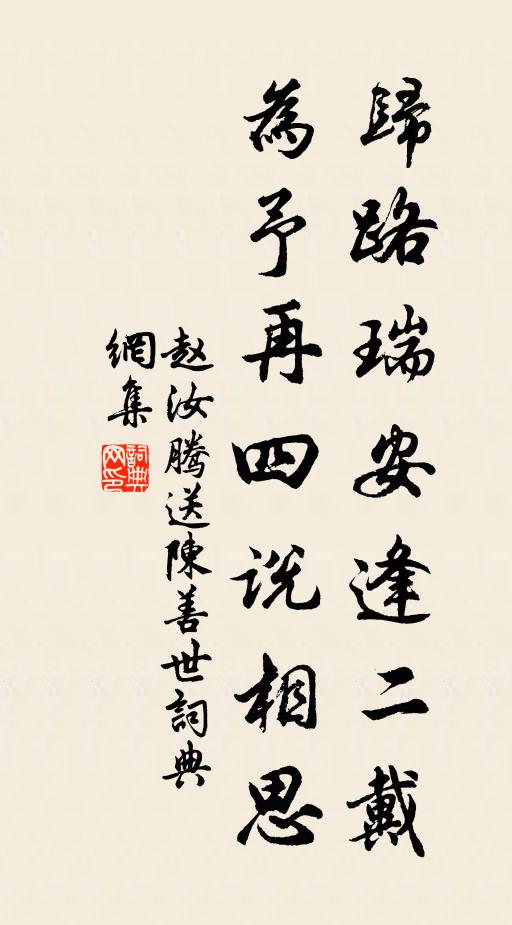 歸路瑞安逢二戴
為予再四说相思
赵汝腾送陳善世詞典
網集
詞典网印